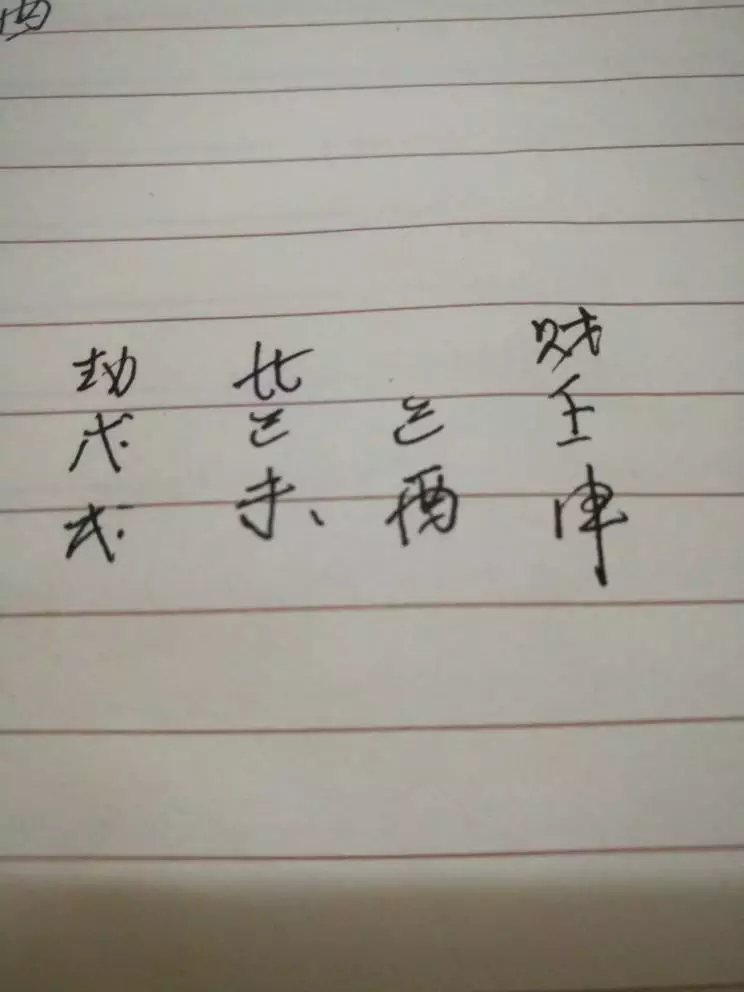 酉
劫 比 财
戊 己 己 壬
戌 未、 酉 申